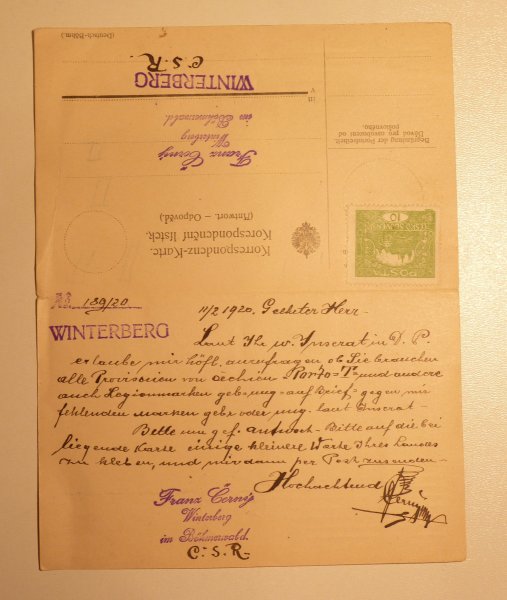 (Deutsch-Böhm.)
C.S.R.
WINTERBERG
in
Franz Černý
Winterberg
im Böhmerwald.
Begründung der Portofreiheit
Důvod pro osvobození od
poštovného.
Korrespondenz-Karte.
Korrespondenční lístek.
(Antwort. — Odpověď.)
10
POSTA
189/20
WINTERBERG
11/2 1920. Geehrter Herr-
Laut Ihr w. Inserat in D. P.
erlaube mir höfl. anzufragen ob Sie brauchen
alle Provisorien von Čechien =Porto=T= und andere
auch Legionmarken gebr=ung=auf Brief= gegen mir
fehlenden Marken gebr oder ung. laut Inserat-
Bette um gef. Antwort- Bitte auf die bei
liegende Karte einige kleinere Werte Ihres Landes
zu kleben, und mir dann per Post zusenden-
Hochachtend
Franz Černý
Winterberg
im Böhmerwald.
C.S.R-